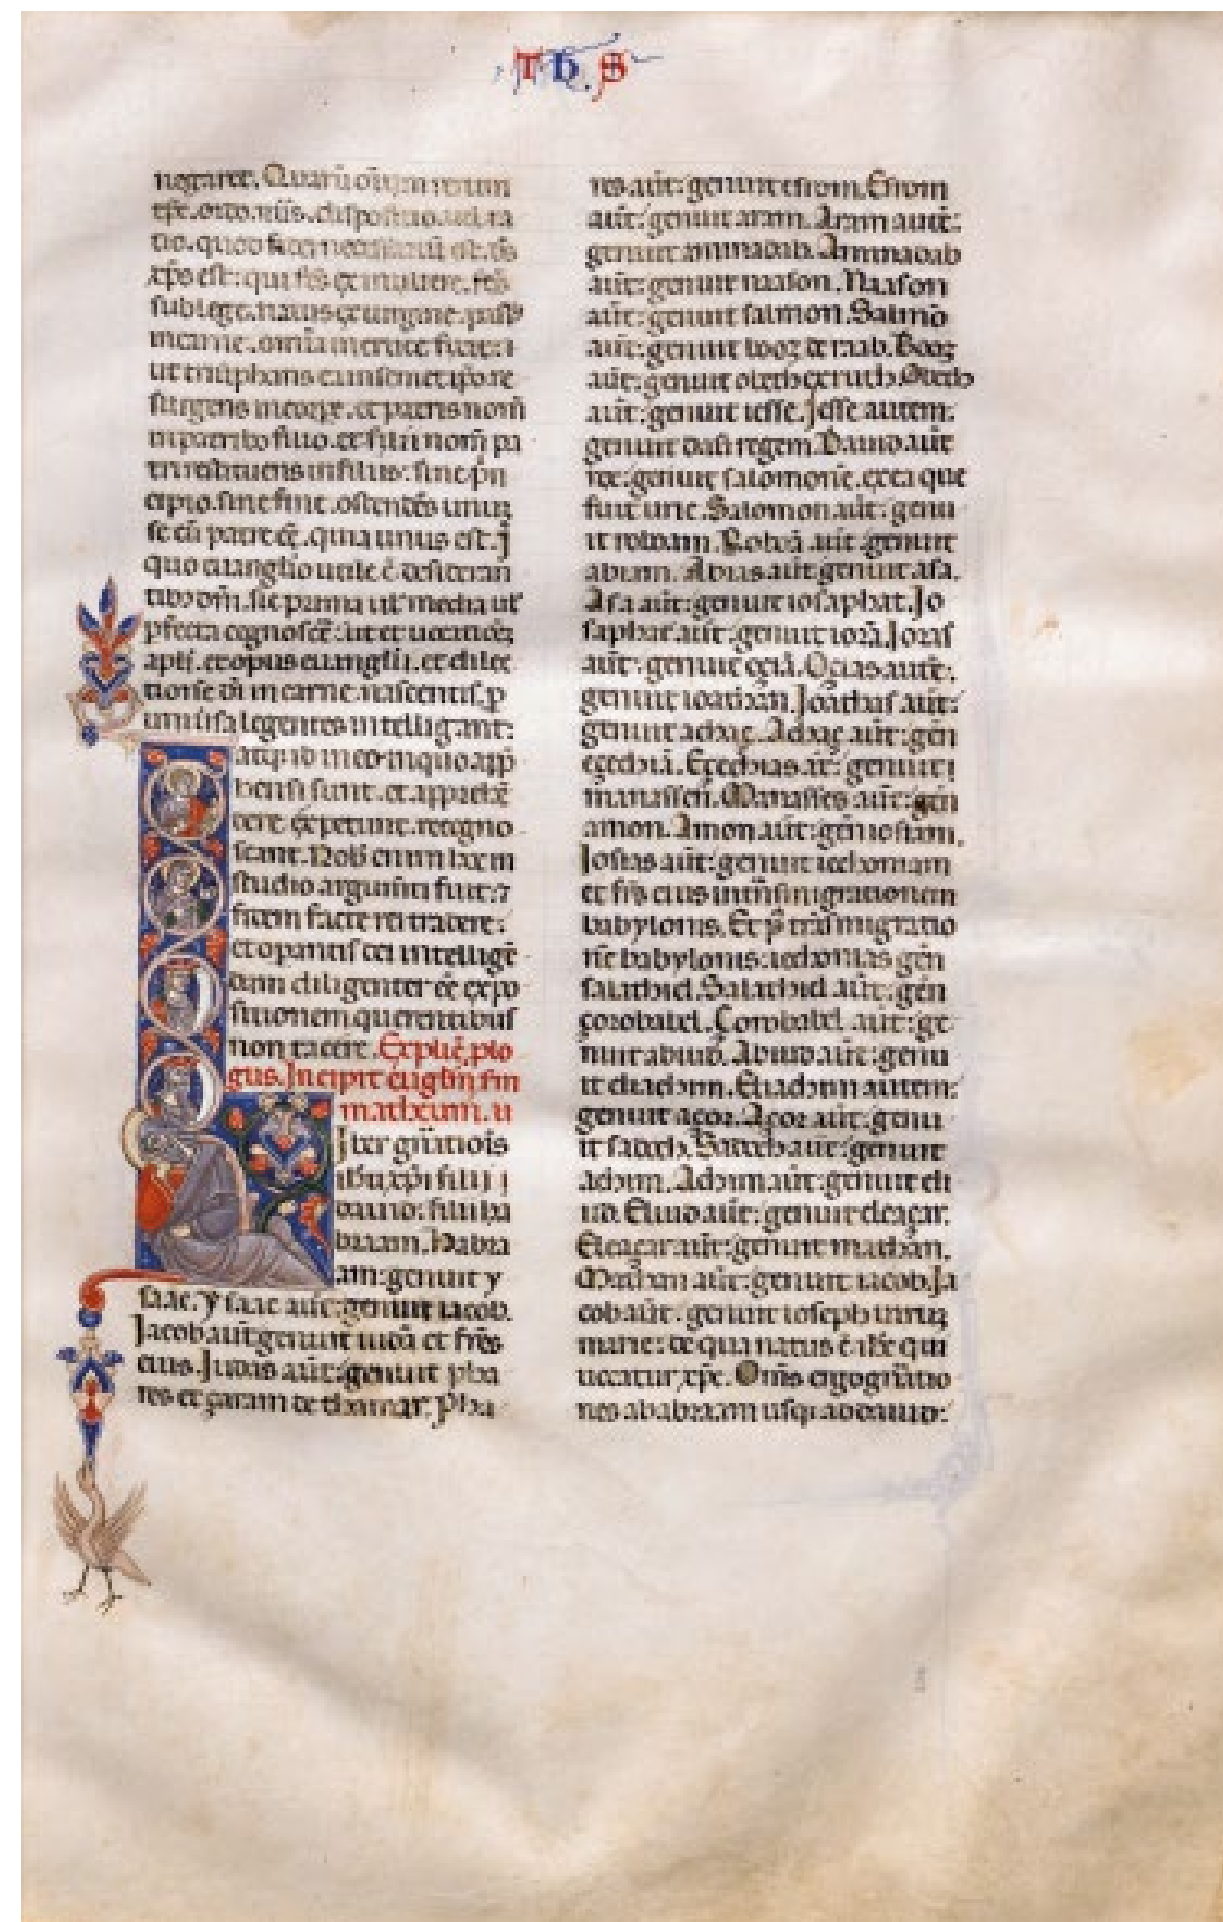 Th.S
negaret. Quarū oīum rerum
tpr̄. ordo. nūs. dispositio. uel ra
tio. quod fidei necessariū est. dc̄s
xp̄s est: qui fc̄s ex muliere. fc̄s
sub lege. natus ex uirgine. pass⁹
in carne. omīa in cruce fixit: ⁊
ut triūphans ea in semet ip̄o re
surgens in corꝑe. et patris nom̄
in patrib⁹ filio. et filii nom̄ pa
tri restituens in filiis: sine prin
cipio. sine fine. ostendēs unū
se cū patre eē. quia unus est. J
quo euanglio utile ē desideran
tib⁹ dm̄. sic prima uł media uł
pfecta cognoscē: ut et uocatiōꝫ
apłi. et opus euanglii. et dilec
tionē di in carne nascentis. ꝑ
uniūsa legentes intelligant:
atqꝫ id in eo in quo app̄
hensi sunt. et appreħē
dere expetunt. recogno
scant. Nob̄ enim hoc in
studio argumti fuit: ⁊
fidem facte rei tradere:
et opantis dei intelligē
dam diligenter eē expo
sitionem querentibus
non tacere. Explic̄ plo
gus. Incipit euglīm sm
matheum. u
Iber gn̄atiois
ihu xp̄i filii
dauid: filii ha
braam. Habra
am: genuit y
saac. Ysaac aūt: genuit iacob.
Jacob aūt genuit iudā et frēs
eius. Judas aūt: genuit pha
res et çaram de thamar. Pha
res. aūt: genuit esrom. Esrom
aūt: genuit aram. Aram aūt:
genuit aminadab. Aminadab
aūt: genuit naason. Naason
aūt: genuit salmon. Salmō
aūt: genuit booz de raab. Booz
aūt: genuit obeth ex ruth. Obeth
aūt: genuit iesse. Jesse autem:
genuit dað regem. Dauid aūt
rex: genuit salomonē. ex ea que
fuit urie. Salomon aūt: genu
it roboam. Roboā. aūt: genuit
abiam. Abias aūt genuit asa.
Asa aūt: genuit iosaphat. Jo
saphat aūt: genuit iorā. Joras
aūt: genuit oçiā. Oçias aūt:
genuit ioathan. Joathas aūt:
genuit achaç. Achaç aūt: gen̄
eçechiā. Eçechias aūt: genuit
manassen̄. Manasses aūt: gen̄
amon. Amon aūt: gen̄ iosiam.
Josias aūt: genuit iechoniam
et frēs eius in trāsmigrationem
babylonis. Et p̄ trāsmigratio
nē babylonis: iechonias gen̄
salathiel. Salathiel aūt: gen̄
çorobabel. Çorobabel aūt: ge
nuit abiud. Abiud aūt: genu
it eliachim. Eliachim autem:
genuit açor. Açor aūt: genu
it sadoch. Sadoch aūt: genuit
achim. Achim aūt: genuit eli
ud. Eliud aūt: genuit eleaçar.
Eleaçar aūt: genuit mathan.
Mathan aūt: genuit iacob. Ja
cob aūt: genuit ioseph uirum
marie: de qua natus ē ihc qui
uocatur xp̄c. Om̄s ergo gn̄atio
nes ab abraam usqꝫ ad dauid: